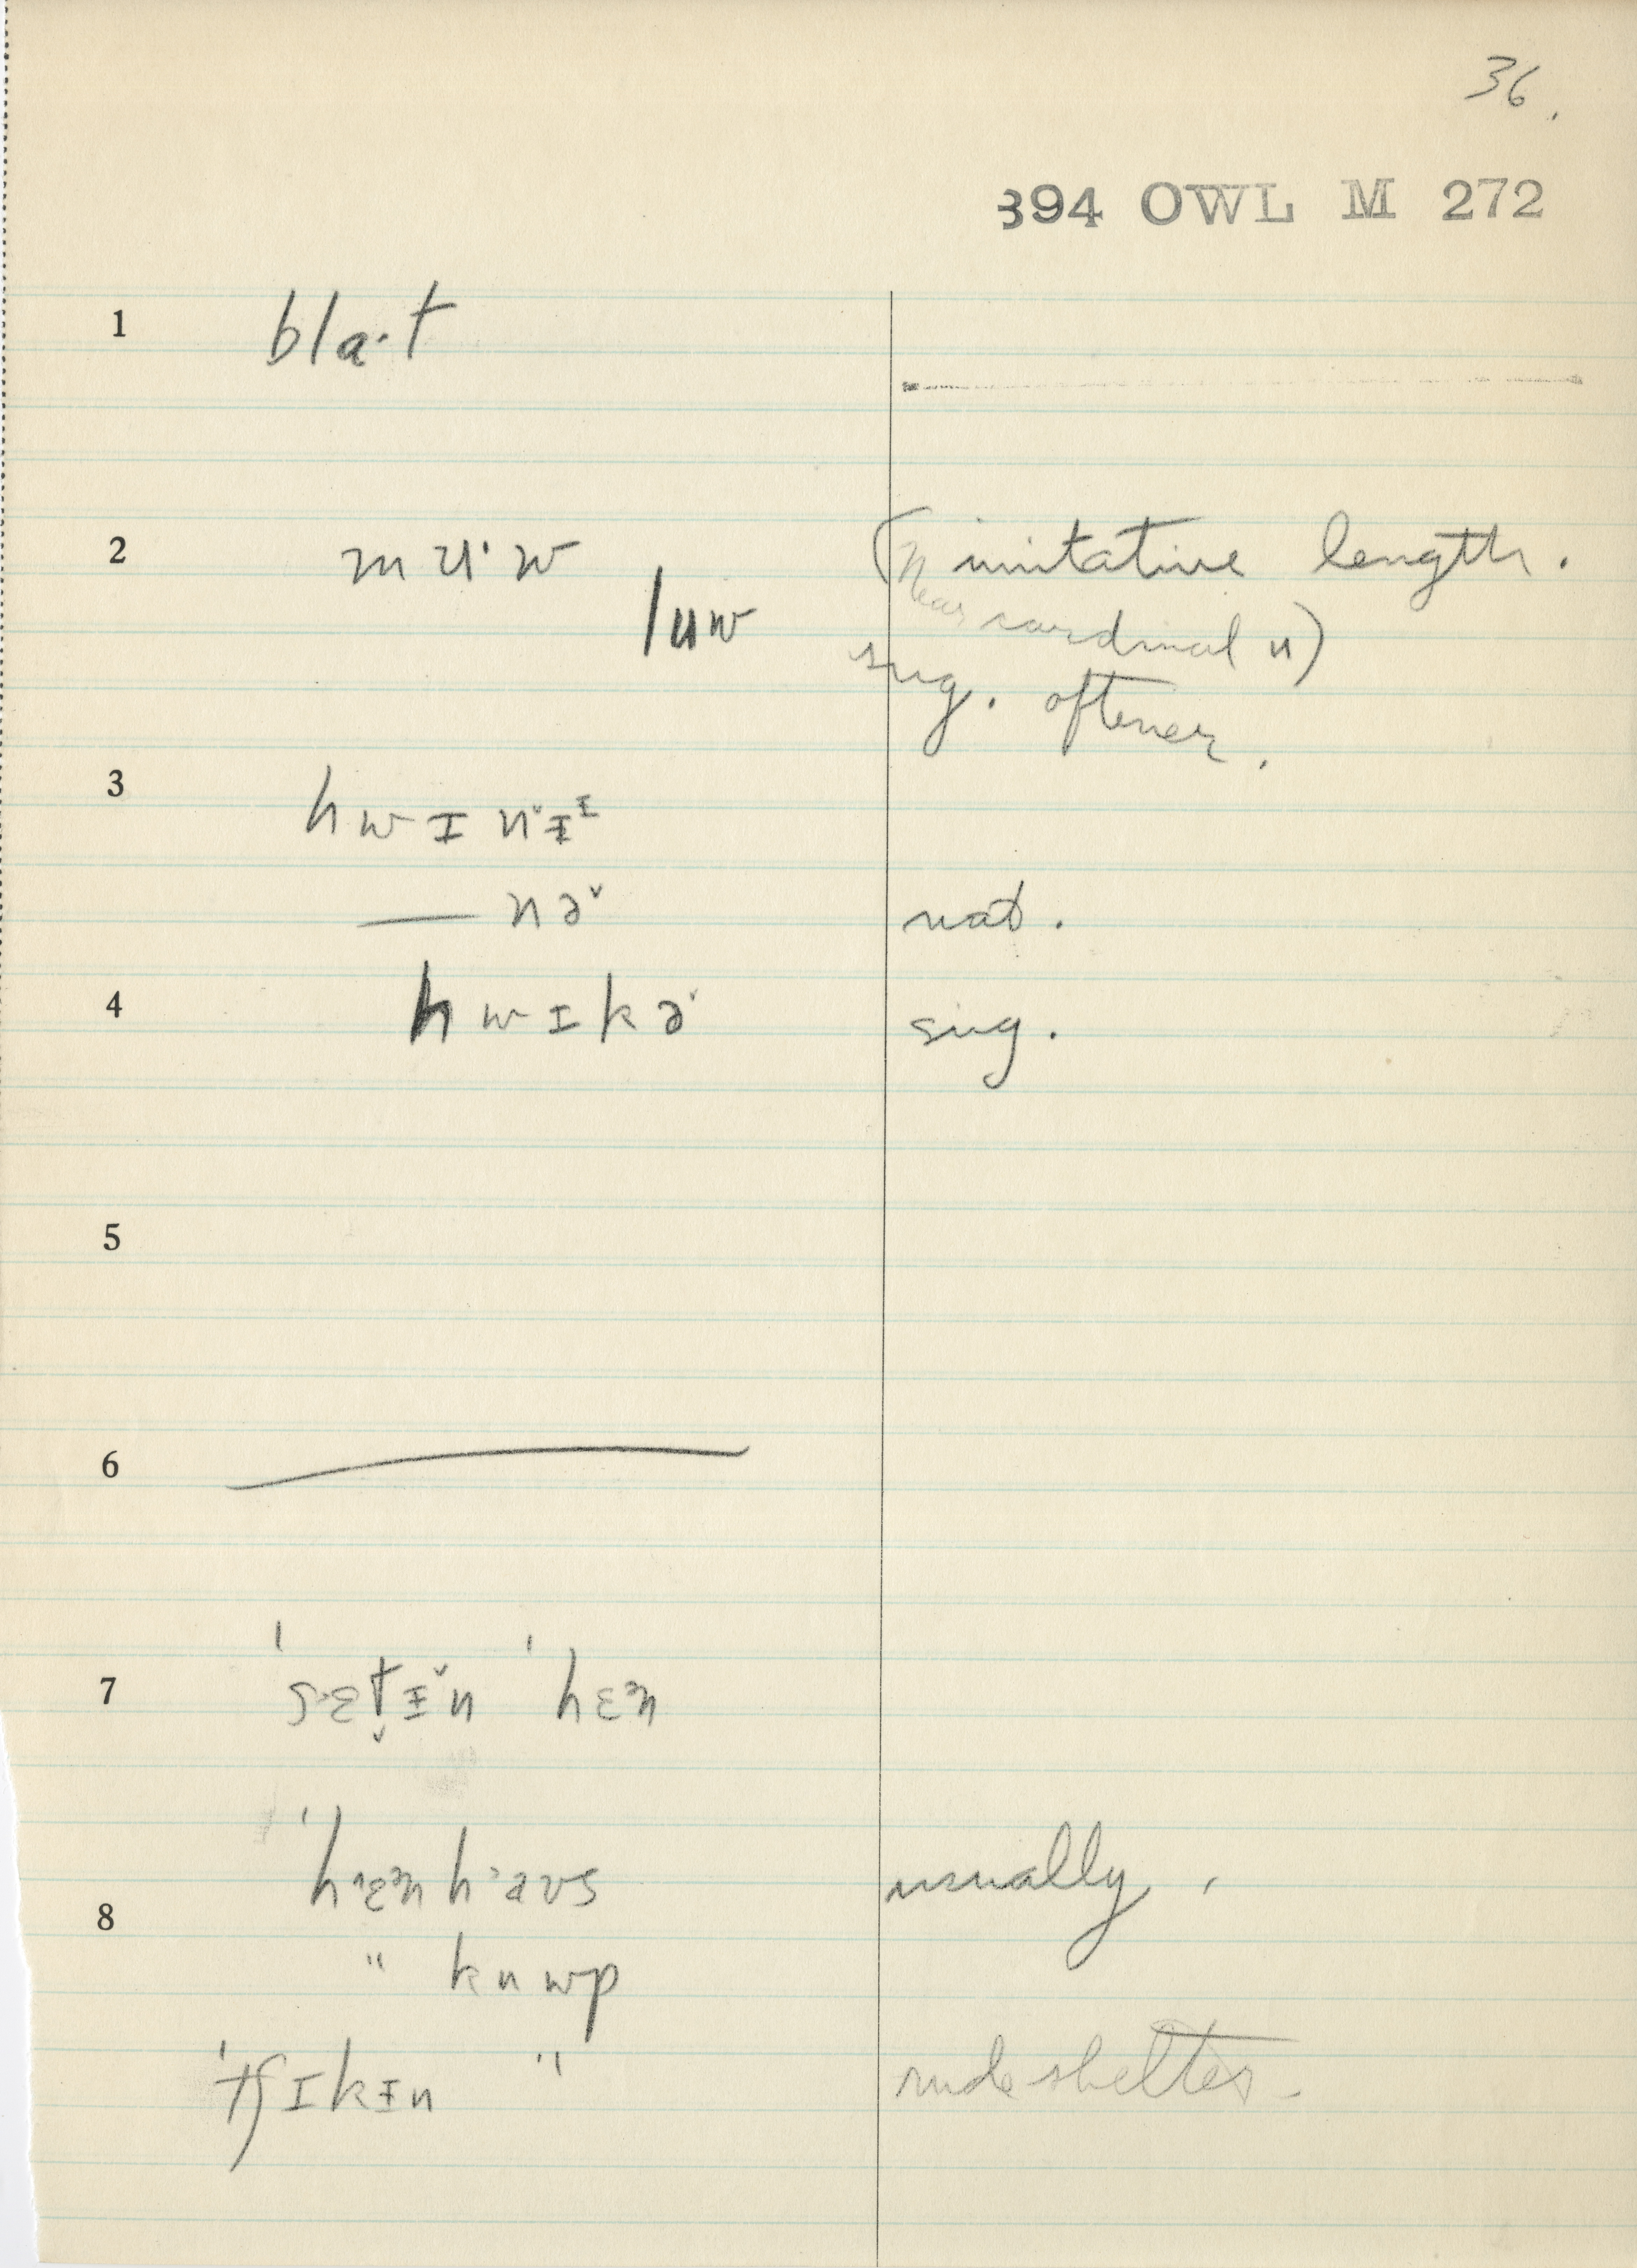 36.
394 OWL M 272
1 bla·t
2 m ʉ· w (imitative length.
luw Near cardinal u)
sug. oftener.
3 hwɪnˇᵻᶦ
— nə̌ nat.
4 hwɪkə sug.
5
6
7 ˈsɛt̬ᵻ̌n ˈhɛᵊn
8 ˈhɛᵊnhaʊs usually,
" kuwp
ˈtʃɪkᵻn " rude shelter.